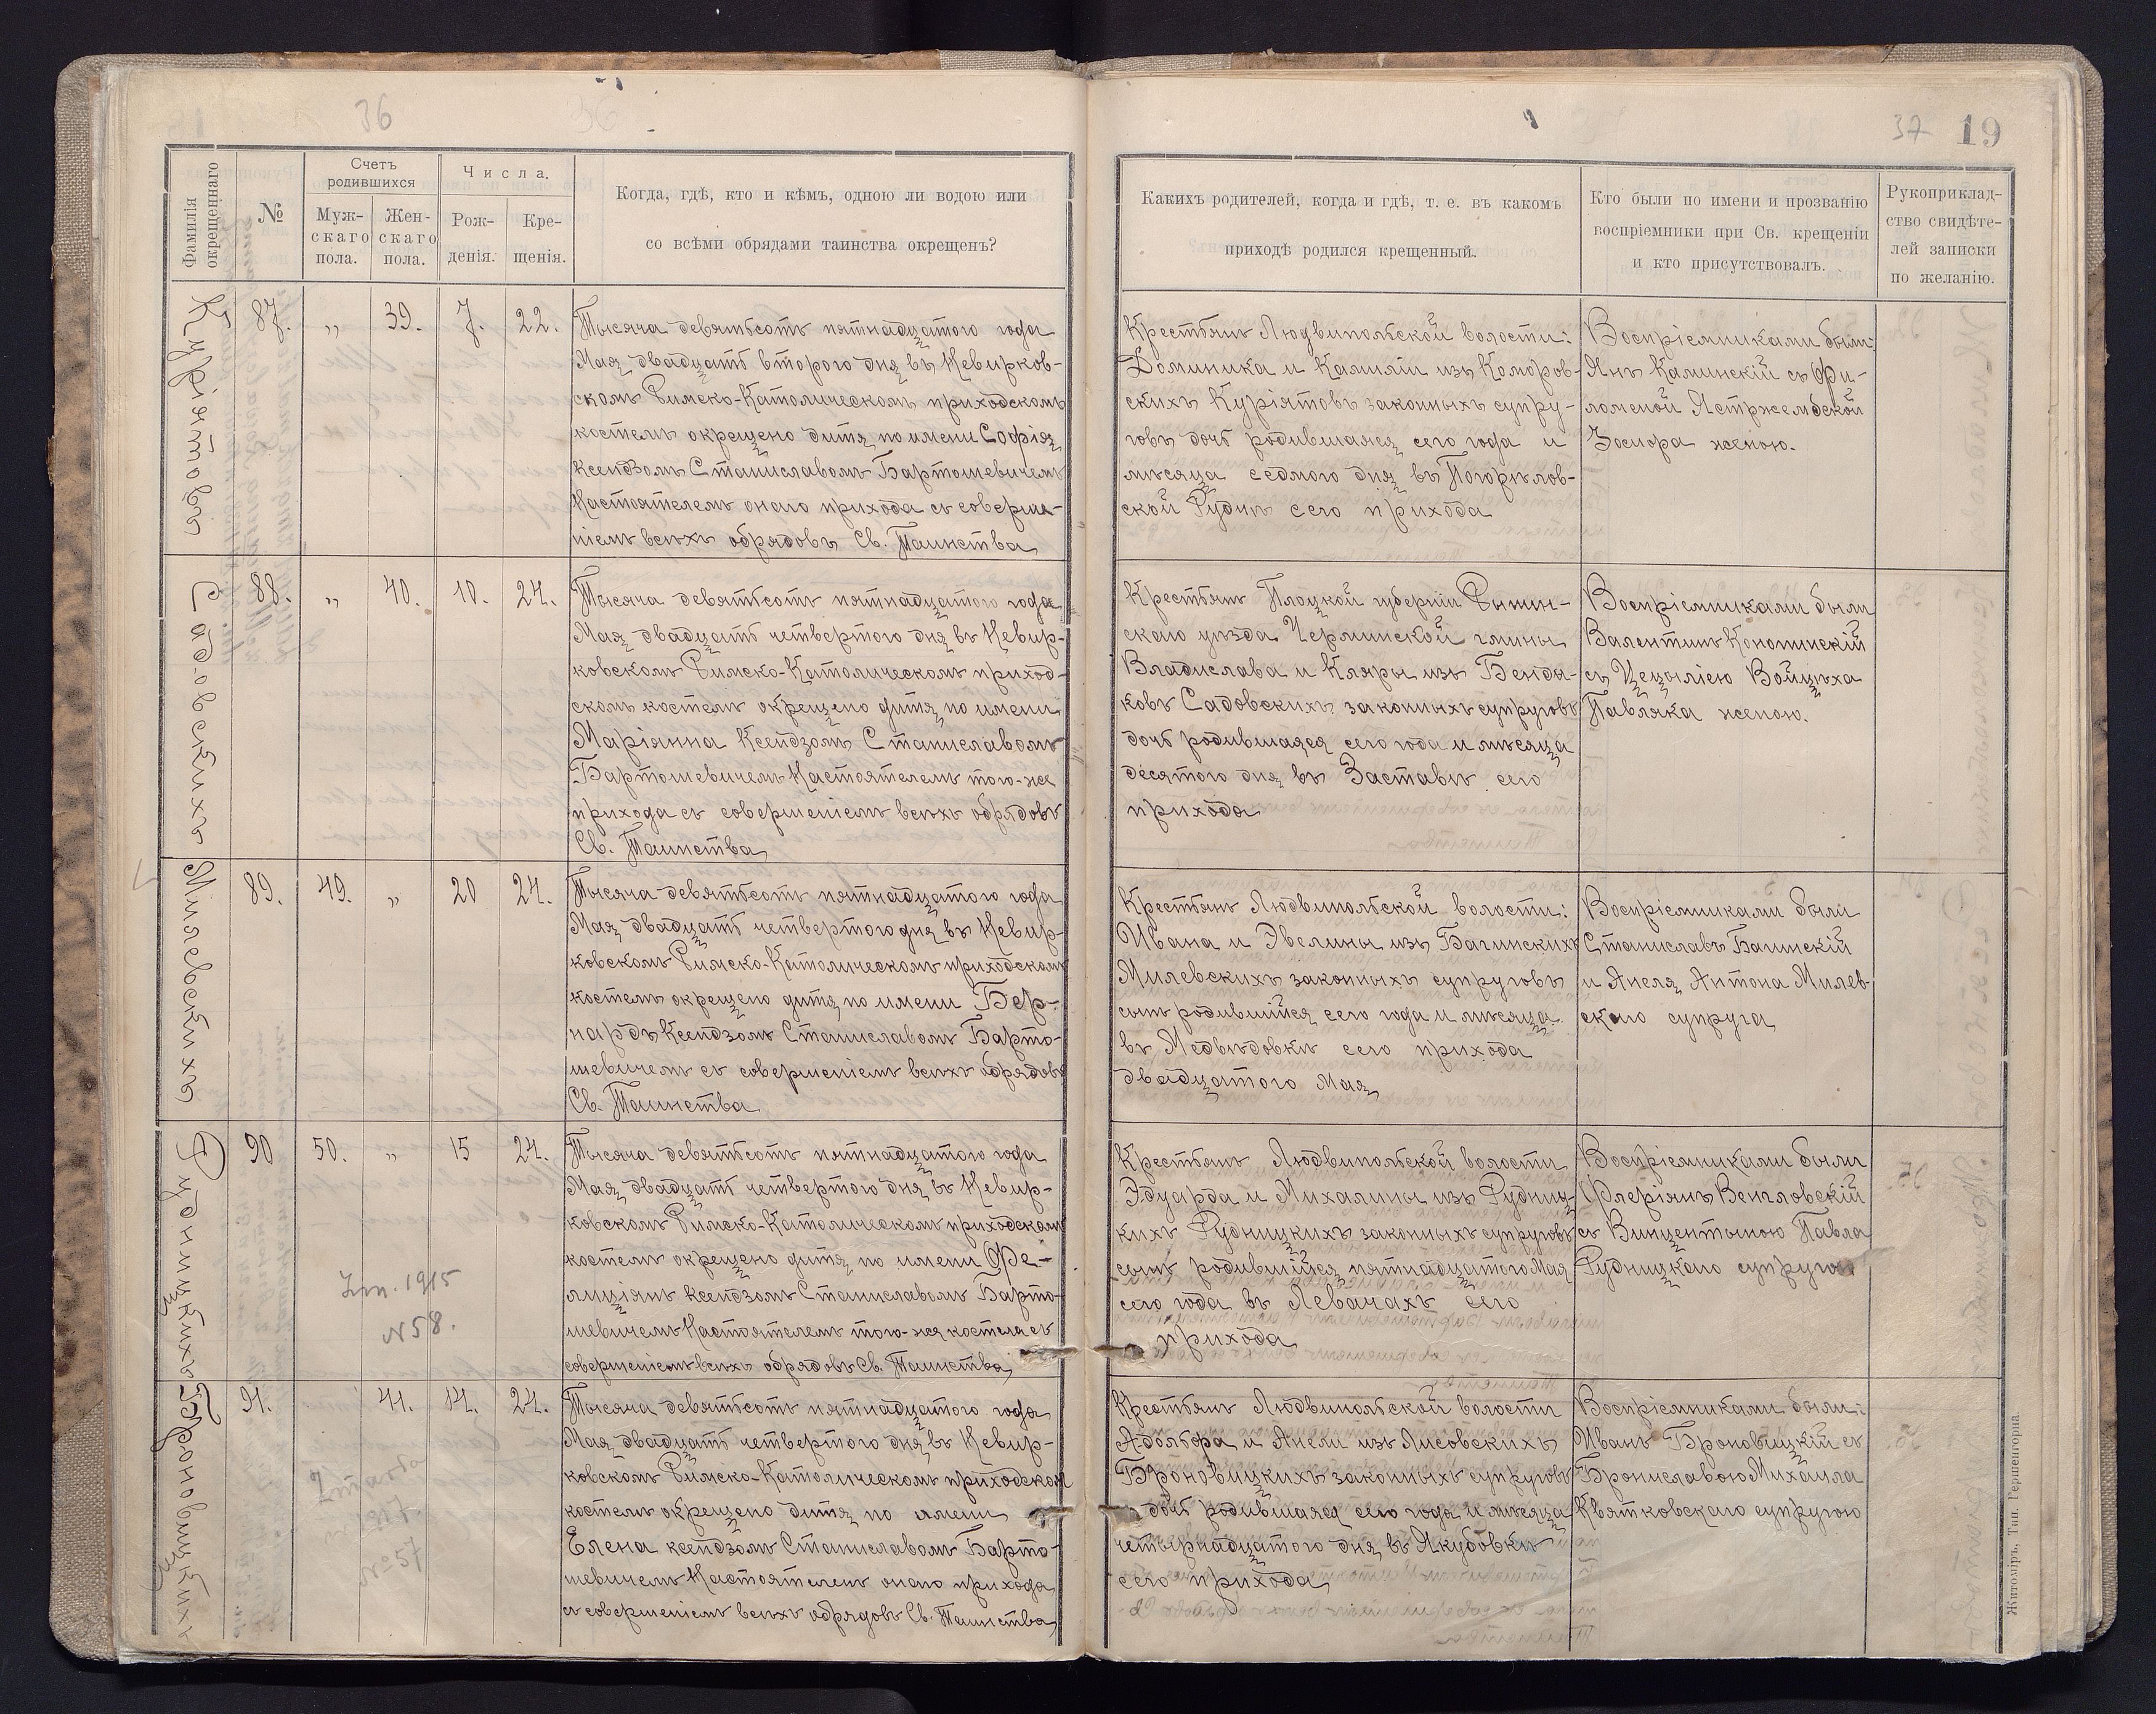 36
37 19
Фамилія
окрещеннаго
№
Счетъ
родившихся
Муж-
скаго
пола.
Жен-
скаго
пола.
Числа.
Рож-
денія.
Кре-
щенія.
Когда, гдѣ, кто и кѣмъ, одною ли водою или
со всѣми обрядами таинства окрещенъ?
Какихъ родителей, когда и гдѣ, т. е. въ какомъ
приходѣ родился крещенный.
Кто были по имени и прозванію
воспріемники при Св. крещеніи
и кто присутствовалъ.
Рукоприклад-
ство свидѣте-
лей записки
по желанію.
Куріятовъ
87. „ 39. 7. 22.
Тысяча девятьсотъ пятнадцатого года
Мая двадцать второго дня въ Невирков-
скомъ Римско-Католическомъ приходскомъ
костелѣ окрещено дитя по имени Софія
Ксендзомъ Станиславомъ Бартошевичемъ
Настоятелемъ онаго прихода съ соверше-
ніемъ всѣхъ обрядовъ Св. Таинства
Крестьянъ Людвипольской волости:
Доминика и Камиліи изъ Коморов-
скихъ Куріятовъ законныхъ супру-
говъ дочь родившаяся сего года и
мѣсяца седмого дня въ Погорѣлов-
ской Руднѣ сего прихода
Воспріемниками были:
Янъ Каминскій съ Фи-
ломеной Ястржембской
Зосифа женою.
Садовскихъ
88. „ 40. 10. 24.
Тысяча девятьсотъ пятнадцатого года
Мая двадцать четвертого дня въ Невир-
ковскомъ Римско-Католическомъ приход-
скомъ костелѣ окрещено дитя по имени
Маріянна Ксендзомъ Станиславомъ
Бартошевичемъ Настоятелемъ того-же
прихода съ совершеніемъ всѣхъ обрядовъ
Св. Таинства
Крестьянъ Плоцкой губерніи Рыпин-
скаго уѣзда Черминской гмины
Владислава и Кляры изъ Бенды-
ковъ Садовскихъ законныхъ супруговъ
дочь родившаяся сего года и мѣсяца
десятого дня въ Заставѣ сего
прихода
Воспріемниками были
Валентинъ Конопинскій
съ Цецыліею Войцѣха
Павляка женою.
Милевскихъ
89. 49. „ 20 24.
Тысяча девятьсотъ пятнадцатого года
Мая двадцать четвертого дня въ Невир-
ковскомъ Римско-Католическомъ приходскомъ
костелѣ окрещено дитя по имени Бер-
нардъ Ксендзомъ Станиславомъ Барто-
шевичемъ съ совершеніемъ всѣхъ обрядовъ
Св. Таинства
Крестьянъ Людвипольской волости:
Ивана и Эвелины изъ Багинскихъ
Милевскихъ законныхъ супруговъ
сынъ родившійся сего года и мѣсяца
въ Медвѣдовкѣ сего прихода
двадцатого Мая
Воспріемниками были
Станиславъ Багинскій
и Анеля Антона Милев-
скаго супруга
Рудницкихъ
90 50. „ 15 24.
Zm. 1915
N 58.
Тысяча девятьсотъ пятнадцатого года
Мая двадцать четвертого дня въ Невир-
ковскомъ Римско-Католическомъ приходскомъ
костелѣ окрещено дитя по имени Фе-
лиціянъ Ксендзомъ Станиславомъ Барто-
шевичемъ Настоятелемъ того-же костела съ
совершеніемъ всѣхъ обрядовъ Св. Таинства
Крестьянъ Людвипольской волости
Эдуарда и Михалины изъ Рудниц-
кихъ Рудницкихъ законныхъ супруговъ
сынъ родившійся пятнадцатого Мая
сего года въ Левачахъ сего
прихода
Воспріемниками были
Флеріянъ Венгловскій
съ Винцентыною Павла
Рудницкаго супругою
Броновицкихъ
91. 41. 14. 24.
№ 57
Тысяча девятьсотъ пятнадцатого года
Мая двадцать четвертого дня въ Невир-
ковскомъ Римско-Католическомъ приходском
костелѣ окрещено дитя по имени
Елена ксендзомъ Станиславомъ Барто-
шевичемъ Настоятелемъ онаго прихода
съ совершеніемъ всѣхъ обрядовъ Св. Таинства
Крестьянъ Людвипольской волости
Адольфа и Анели изъ Лисовскихъ
Броновицкихъ законныхъ супруговъ
дочь родившаяся сего года и мѣсяца
четырнадцатого дня въ Якубовкѣ
сего прихода
Воспріемниками были:
Иванъ Броновицкій съ
Брониславою Михаила
Квятковскаго супругою
Житоміръ, Тип. Гершенгорна.